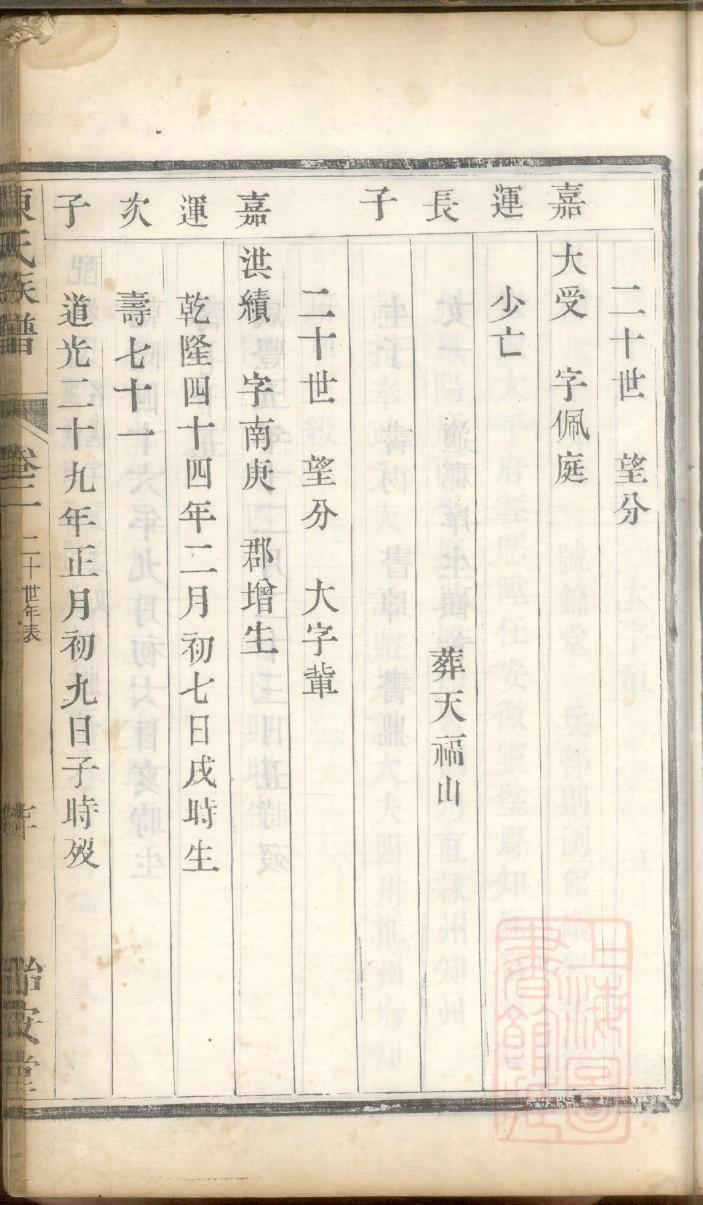 二十世 望分
嘉運長子
大受 字佩庭
少亡
葬天福山
二十世 望分 大字輩
嘉運次子
洪績 字南庚 郡增生
乾隆四十四年二月初七日戌時生
壽七十一
道光二十九年正月初九日子時歿
陳氏族譜 卷二 二十世年表
上海圖書館藏